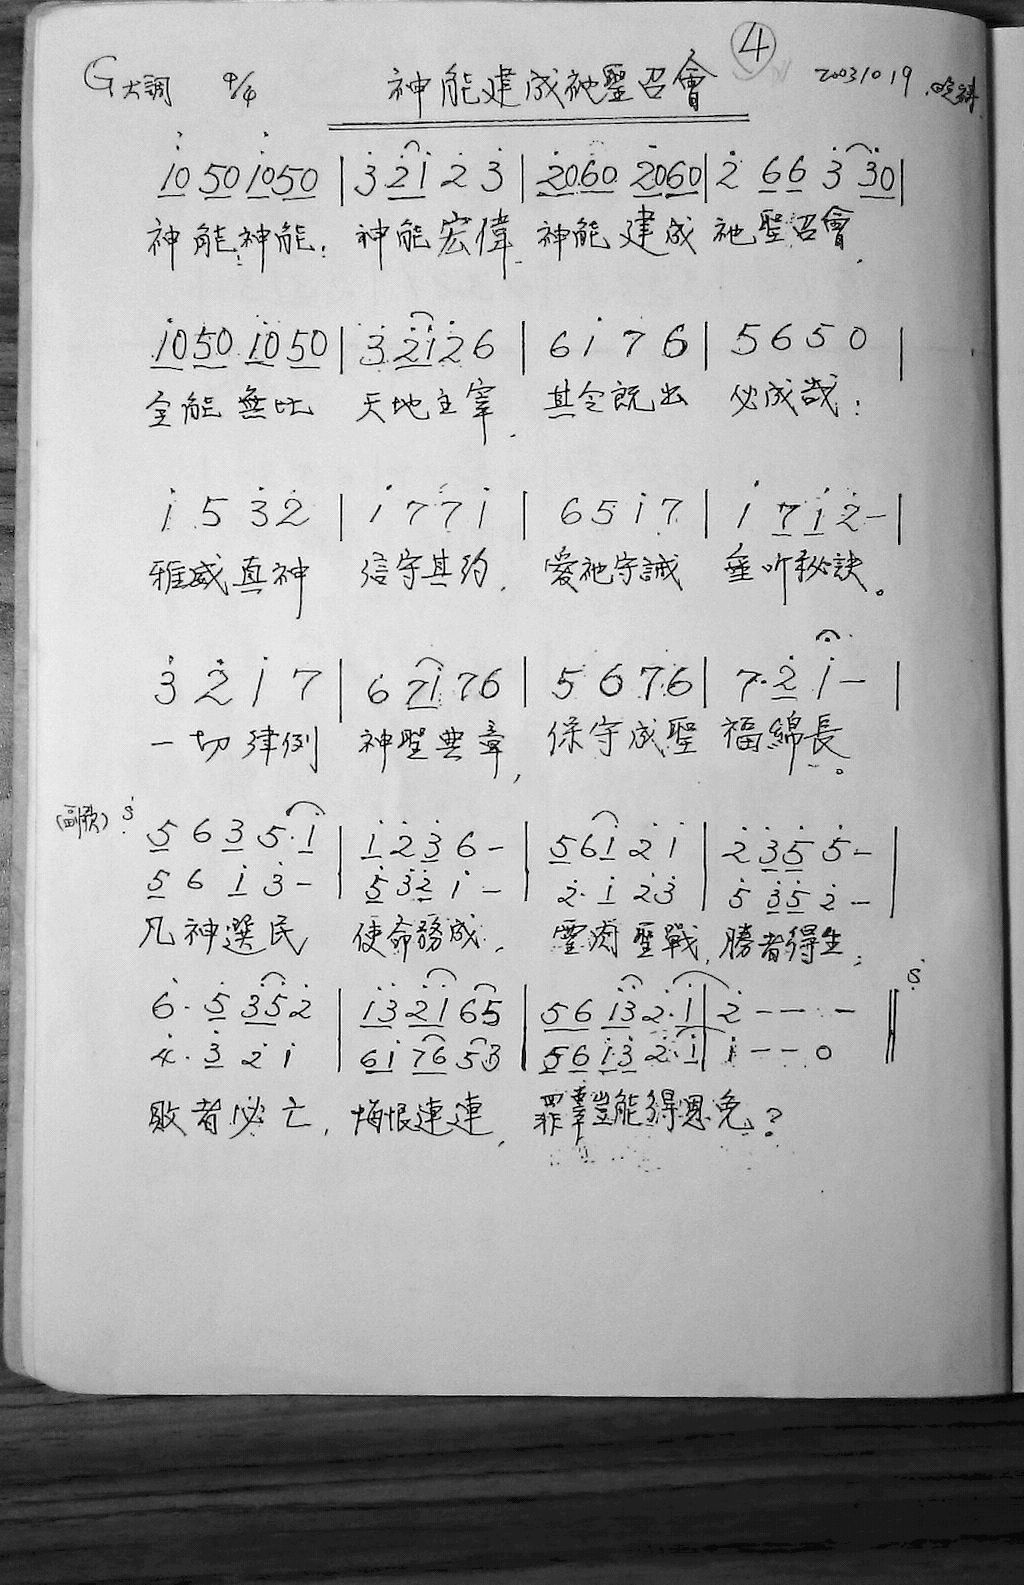 ④
G大調 4/4 神能建成祂聖召會 20031019
1̇0 50 1̇0 50 | 3̇ 2̇1̇ 2̇ 3̇ | 2̇0 60 2̇0 60 | 2̇ 66 3̇ 3̇0 |
神能神能: 神能宏偉. 神能建成祂聖召會.
1̇0 50 1̇0 50 | 3̇ 2̇1̇ 2̇ 6 | 6 1̇ 7 6 | 5 6 5 0 |
全能無比 天地主宰. 其令既出 必成哉:
1̇ 5 3̇ 2̇ | 1̇ 7 7 1̇ | 6 5 1̇ 7 | 1̇ 7 1̇ 2̇ - |
雅威真神 信守其約. 愛祂守誡 垂听秘訣。
3̇ 2̇ 1̇ 7 | 6 7 1̇ 7 6 | 5 6 7 6 | 7· 2̇ 1̇ - |
一切律例 神聖典章, 保守成聖 福綿長。
(副歌) 5 6 3 5· 1̇ | 1̇ 2̇ 3̇ 6 - | 5 6 1̇ 2̇ 1̇ | 2̇ 3̇ 5̇ 5̇ - |
5 6 1̇ 3̇ - | 5̇ 3̇ 2̇ 1̇ - | 2̇· 1̇ 2̇ 3̇ | 5̇ 3̇ 5̇ 2̇ - |
凡神選民 使命務成. 靈肉聖戰, 勝者得生;
6̇· 5̇ 3̇ 5̇ 2̇ | 1̇ 3̇ 2̇ 1̇ 6 5 | 5 6 1̇ 3̇ 2̇· 1̇ | 2̇ - - - ‖
4̇· 3̇ 2̇ 1̇ | 6 1̇ 7 6 5 3 | 5 6 1̇ 3̇ 2̇· 1̇ | 1̇ - - 0
敗者必亡, 悔恨連連, 罪辜豈能得恩免?